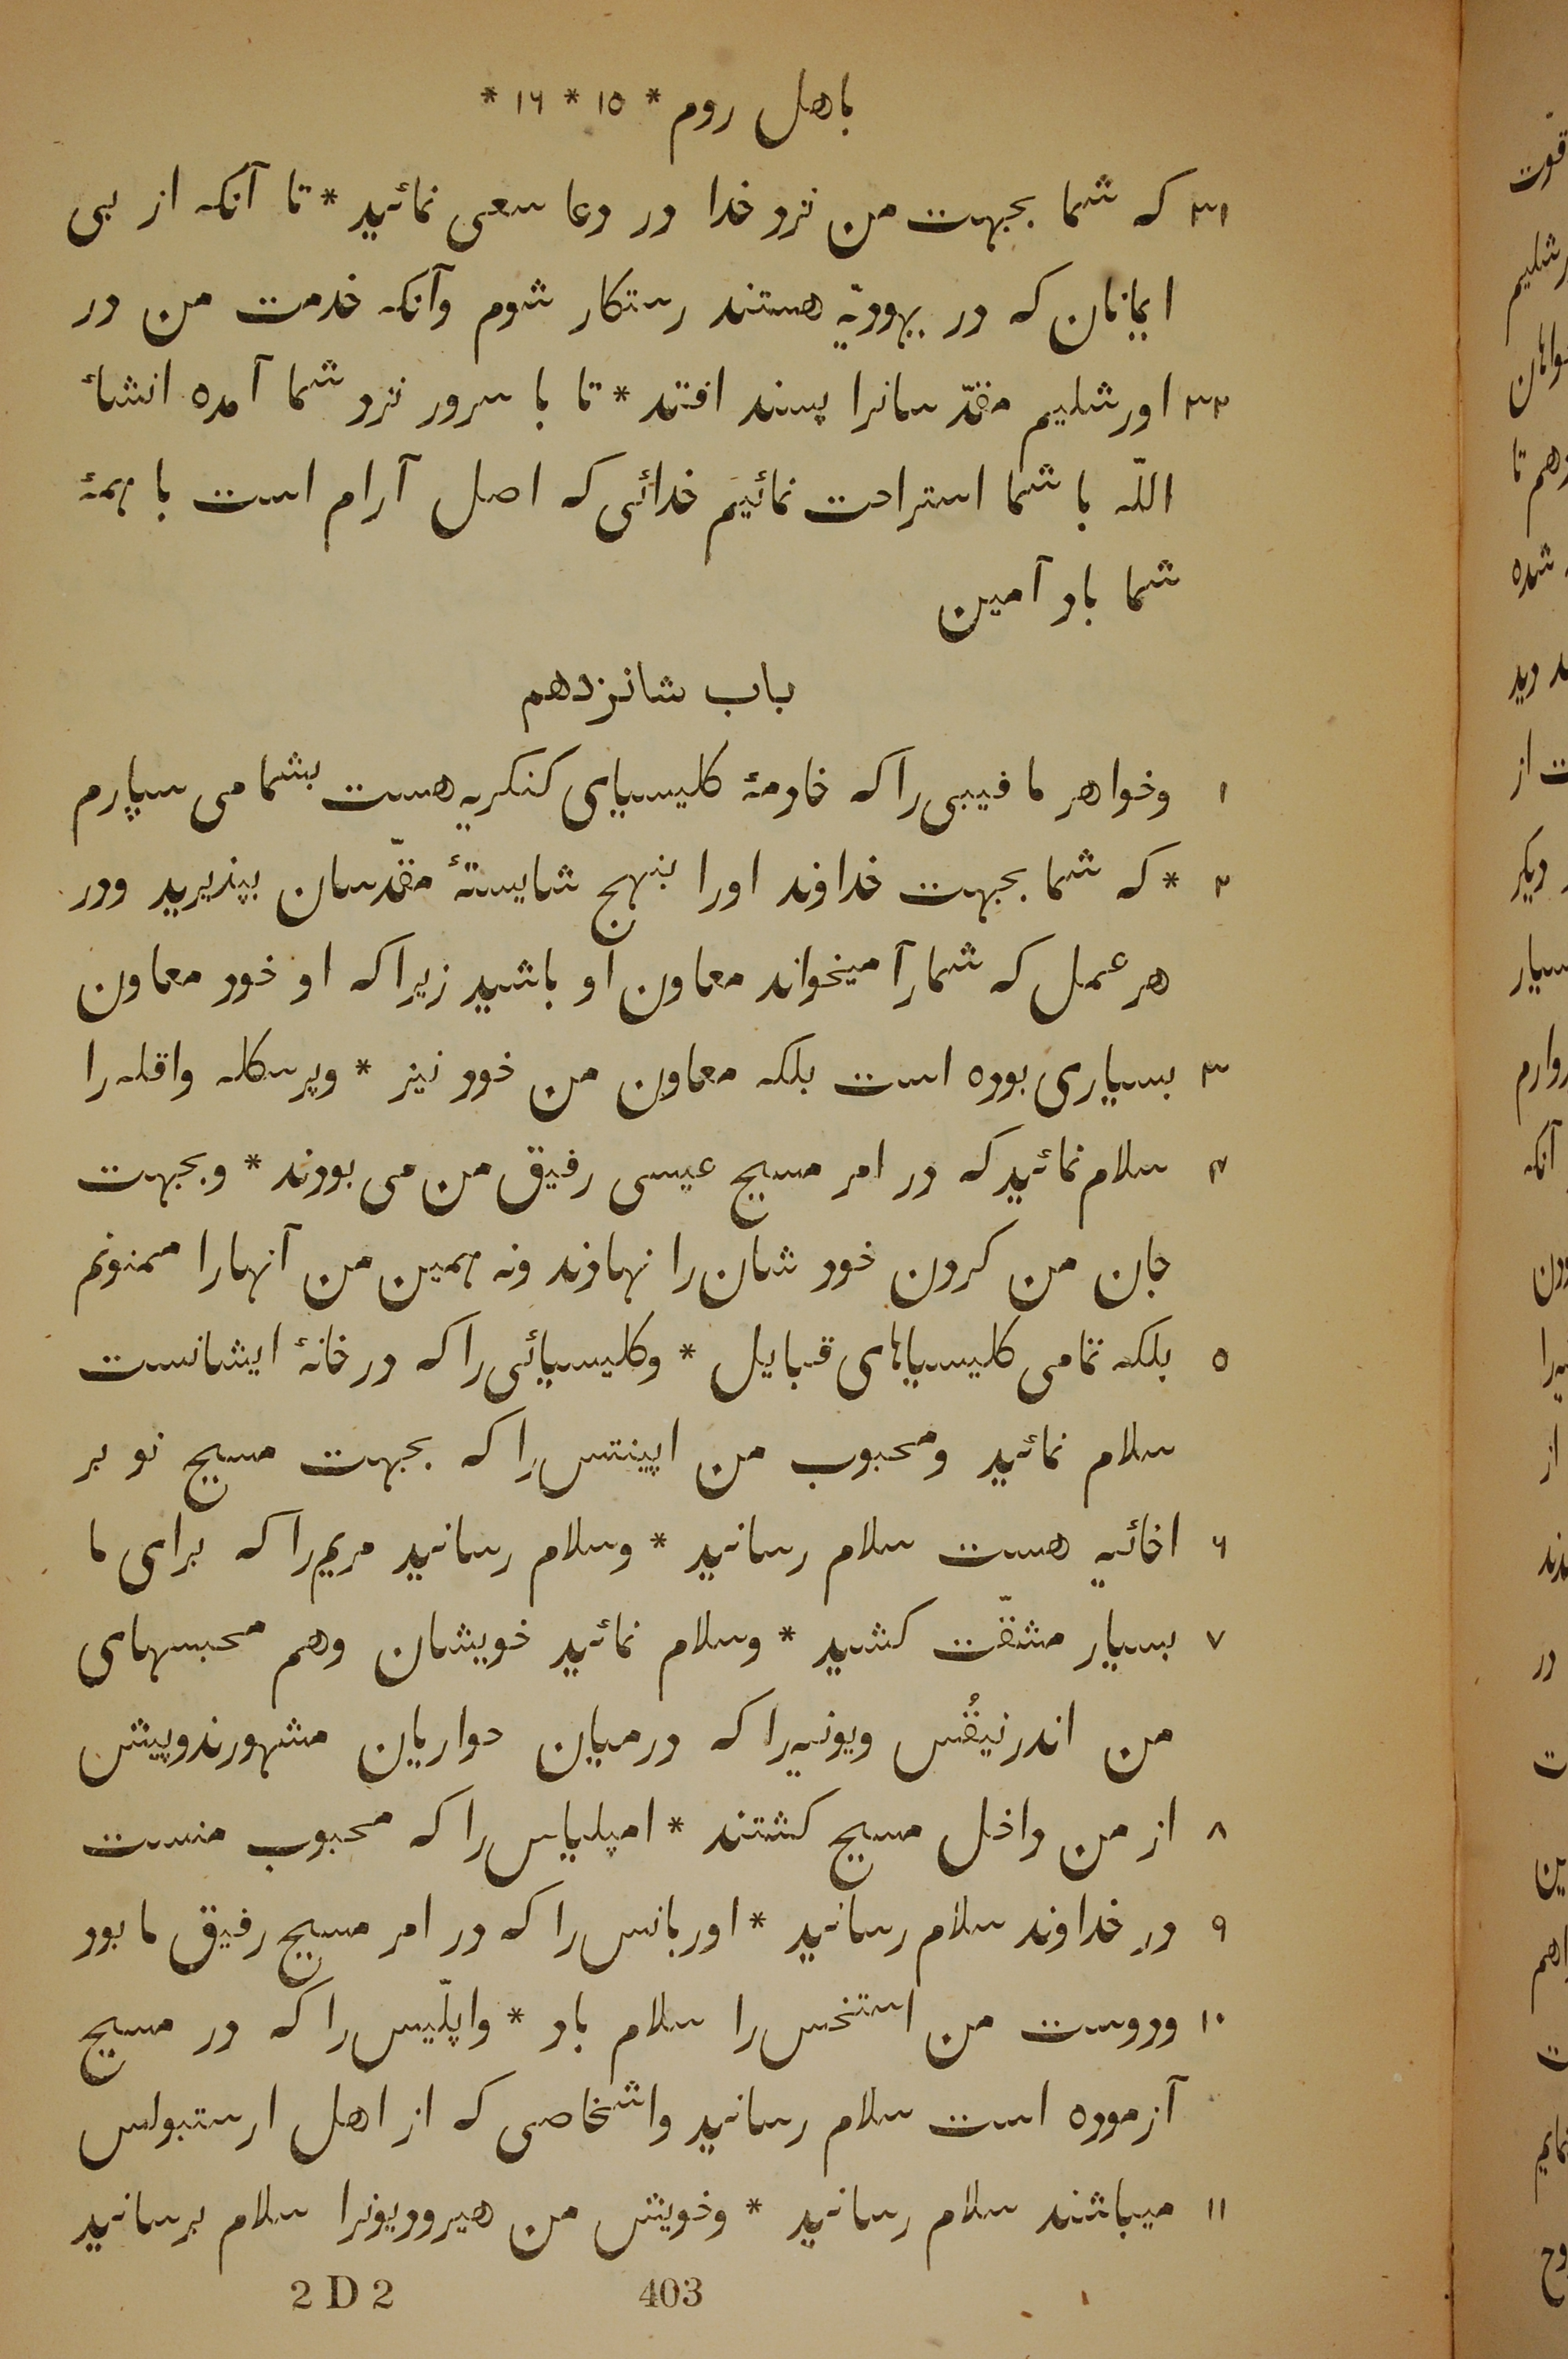 باهل روم * ۱۵ * ۱۶ *
۳۱ که شما بجهت من نزد خدا در دعا سعی نمائید * تا آنکه از بی
ایمانان که در یهودیّه هستند رستکار شوم وآنکه خدمت من در
۳۲ اورشلیم مقدّسانرا پسند افتد * تا با سرور نزد شما آمده انشاءٔ
اللّه با شما استراحت نمائیم خدائی که اصل آرام است با همهٔ
شما باد آمین
باب شانزدهم
۱ وخواهر ما فیبی را که خادمهٔ کلیسیای کنکریه هست بشما می سپارم
۲ * که شما بجهت خداوند اورا بنهج شایستهٔ مقدّسان بپذیرید ودر
هر عمل که شمارا میخواند معاون او باشید زیرا که او خود معاون
۳ بسیاری بوده است بلکه معاون من خود نیز * وپرسکله واقله را
۴ سلام نمائید که در امر مسیح عیسی رفیق من می بودند * وبجهت
جان من کردن خود شان را نهادند ونه همین من آنهارا ممنونم
۵ بلکه تمامی کلیسیاهای قبایل * وکلیسیائی را که در خانهٔ ایشانست
سلام نمائید ومحبوب من اپینتس را که بجهت مسیح نو بر
۶ اخائیه هست سلام رسانید * وسلام رسانید مریم را که برای ما
۷ بسیار مشقّت کشید * وسلام نمائید خویشان وهم محبسهای
من اندرنیقُس ویونیه را که درمیان حواریان مشهورند وپیش
۸ از من داخل مسیح کشتند * امپلیاس را که محبوب منست
۹ در خداوند سلام رسانید * اوربانس را که در امر مسیح رفیق ما بود
۱۰ ودوست من استخس را سلام باد * واپلّیس را که در مسیح
آزموده است سلام رسانید واشخاصی که از اهل ارستبولس
۱۱ میباشند سلام رسانید * وخویش من هیرودیونرا سلام برسانید
2 D 2 403